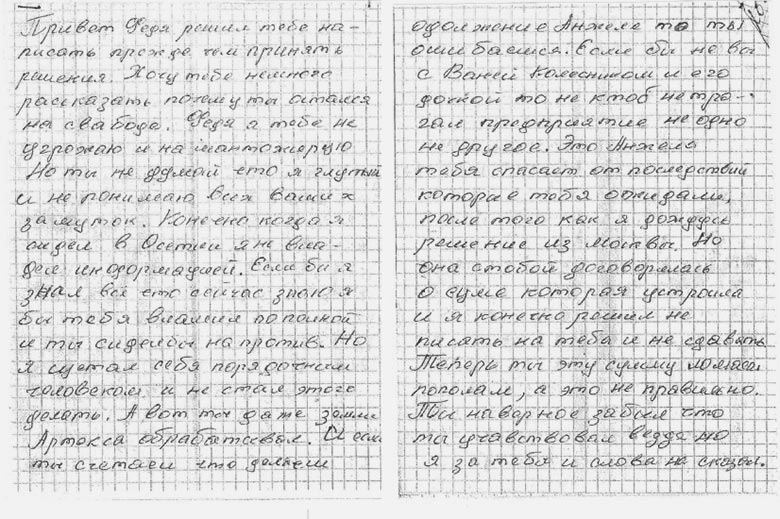 1
Привет Федя решил тебе на-
писать прежде чем принять
решения. Хочу тебе немного
рассказать почему ты остался
на свабоде. Федя я тебе не
угрожаю и на шантожирую
Но ты не думай что я глупый
и не понимаю всех ваших
замуток. Конечно когда я
сидел в Осетии я не вла-
дел информацией. Если бы я
знал всё что сейчас знаю я
бы тебя вламил по полной
и ты сидел бы на против. Но
я щетал себя порядочним
человеком и не стал этого
делать. А вот ты даже земли
Артекса обрабатывал. И если
ты счетаеш что делаеш
одолжение Анжеле то ты
ошибаешся. Если бы не вы
с Ваней Колесником и его
дочкой то не ктоб не тро-
гал предприятие не одно
не другое. Это Анжела
тебя спасает от последствий
которые тебя ожидали,
после того как я дождусь
решение из Москвы. Но
она стобой договорилась
о суме которая устроила
и я конечно решил не
писать на тебя и не сдавать
Теперь ты эту сумму ломаеш
пополам, а это не правильно.
Ты наверное забыл что
ты учавствовал везде но
я за тебя и слова не сказал.